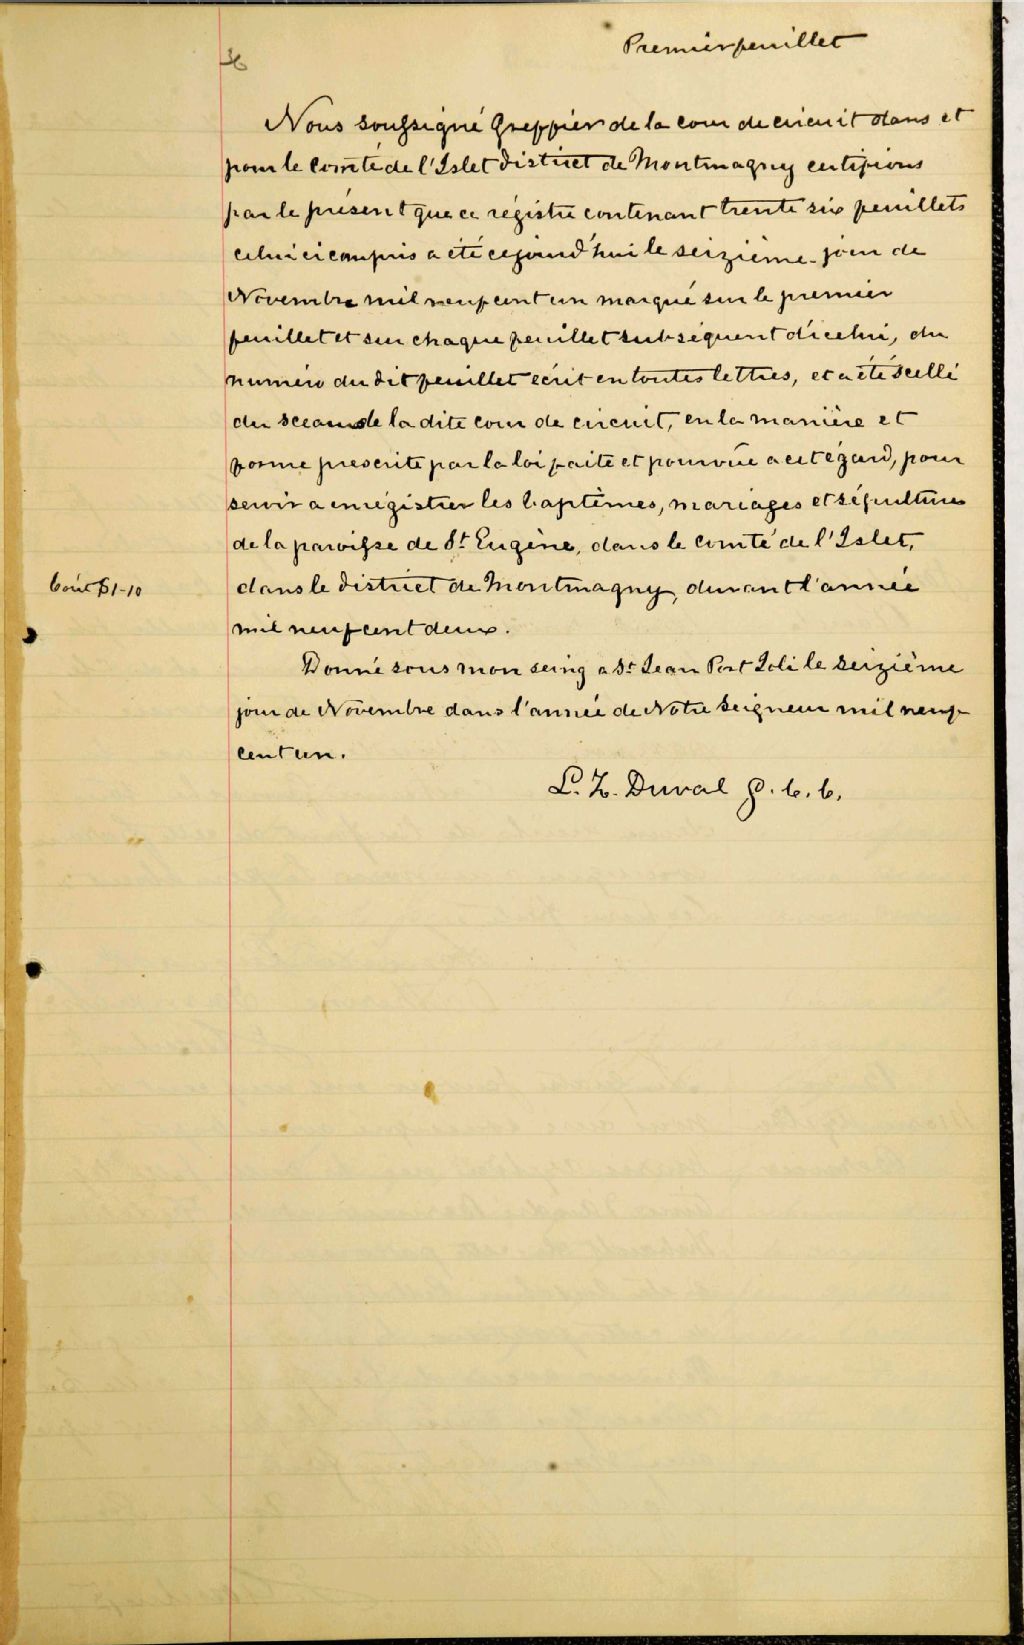 Premier feuillet
36
Nous soussigné Greffier de la cour de circuit dans et
pour le comté de l'Islet district de Montmagny certifions
par le présent que ce régistre contenant trente six feuillets
celui ci compris a été cejourd'hui le seizième jour de
Novembre mil neuf cent un marqué sur le premier
feuillet et sur chaque feuillet subséquent d'icelui, du
numéro du dit feuillet écrit en toutes lettres, et a été scellé
du sceau de la dite cour de circuit, en la manière et
forme prescrite par la loi faite et pourvue a cet égard, pour
servir a enrégistrer les baptêmes, mariages et sépultures
de la paroisse de St Eugène, dans le comté de l'Islet,
Coût $1-10
dans le district de Montmagny, durant l'année
mil neuf cent deux.
Donné sous mon seing a St Jean Port Joli le seizième
jour de Novembre dans l'année de Notre Seigneur mil neuf
cent un.
L. Z. Duval g. c. c.